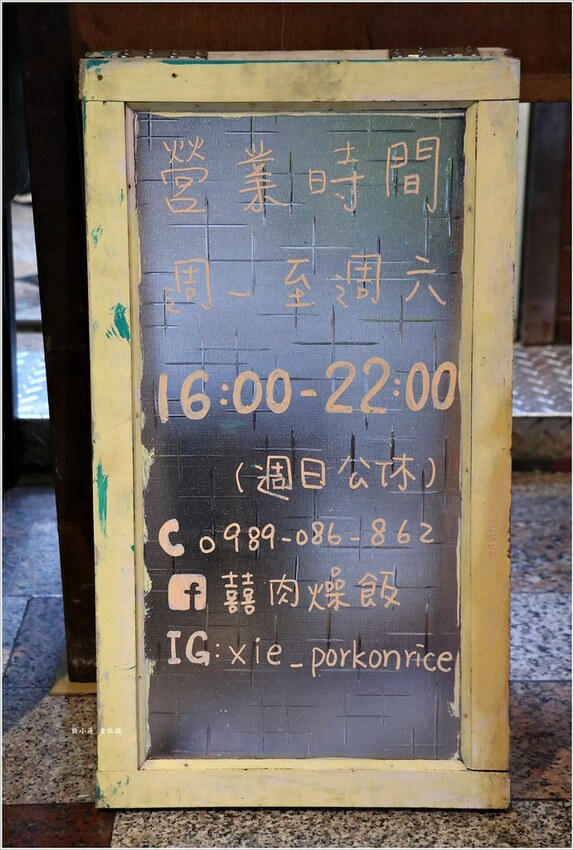 營業時間
週一至週六
16:00-22:00
(週日公休)
0989-086-862
f 囍肉燥飯
IG:xie_porkonrice